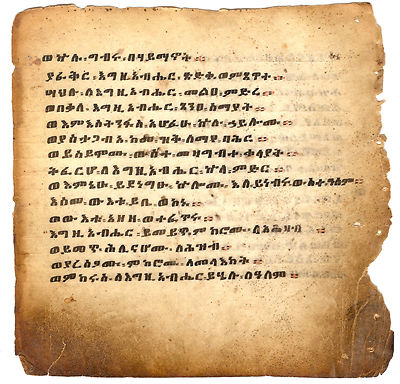 ወኵሉ ፡ ግብሩ ፡ በሃይማኖት ።
ያፈቅር ፡ እግዚአብሔር ፡ ጽድቀ ፡ ወምጽዋተ ።
ሣህሉ ፡ ለእግዚአብሔር ፡ መልዐ ፡ ምድረ ።
ወበቃለ ፡ እግዚአብሔር ፡ ጸንዐ ፡ ሰማያት ።
ወእምእስትንፋሰ ፡ አፉሁ ፡ ኵሉ ፡ ኃይሎሙ ።
ዘያስተጋብኦ ፡ ከመ ፡ ዝቅ ፡ ለማየ ፡ ባሕር ።
ወይሠይሞሙ ፡ ውስተ ፡ መዛግብተ ፡ ቀላያት ።
ትፈርሆ ፡ ለእግዚአብሔር ፡ ኵላ ፡ ምድር ።
ወእምኔሁ ፡ ይደነግፁ ፡ ኵሎሙ ፡ እለ ፡ ይነብሩ ፡ ውስተ ፡ ዓለም ።
እስመ ፡ ውእቱ ፡ ይቤ ፡ ወኮኑ ።
ወውእቱ ፡ አዘዘ ፡ ወተፈጥሩ ።
እግዚአብሔር ፡ ይመይጥ ፡ ምክሮሙ ፡ ለአሕዛብ ።
ወይመይጥ ፡ ሕሊናሆሙ ፡ ለሕዝብ ።
ወያረስዖሙ ፡ ምክሮሙ ፡ ለመላእክት ።
ወምክሩሰ ፡ ለእግዚአብሔር ፡ ይሄሉ ፡ ለዓለም ።